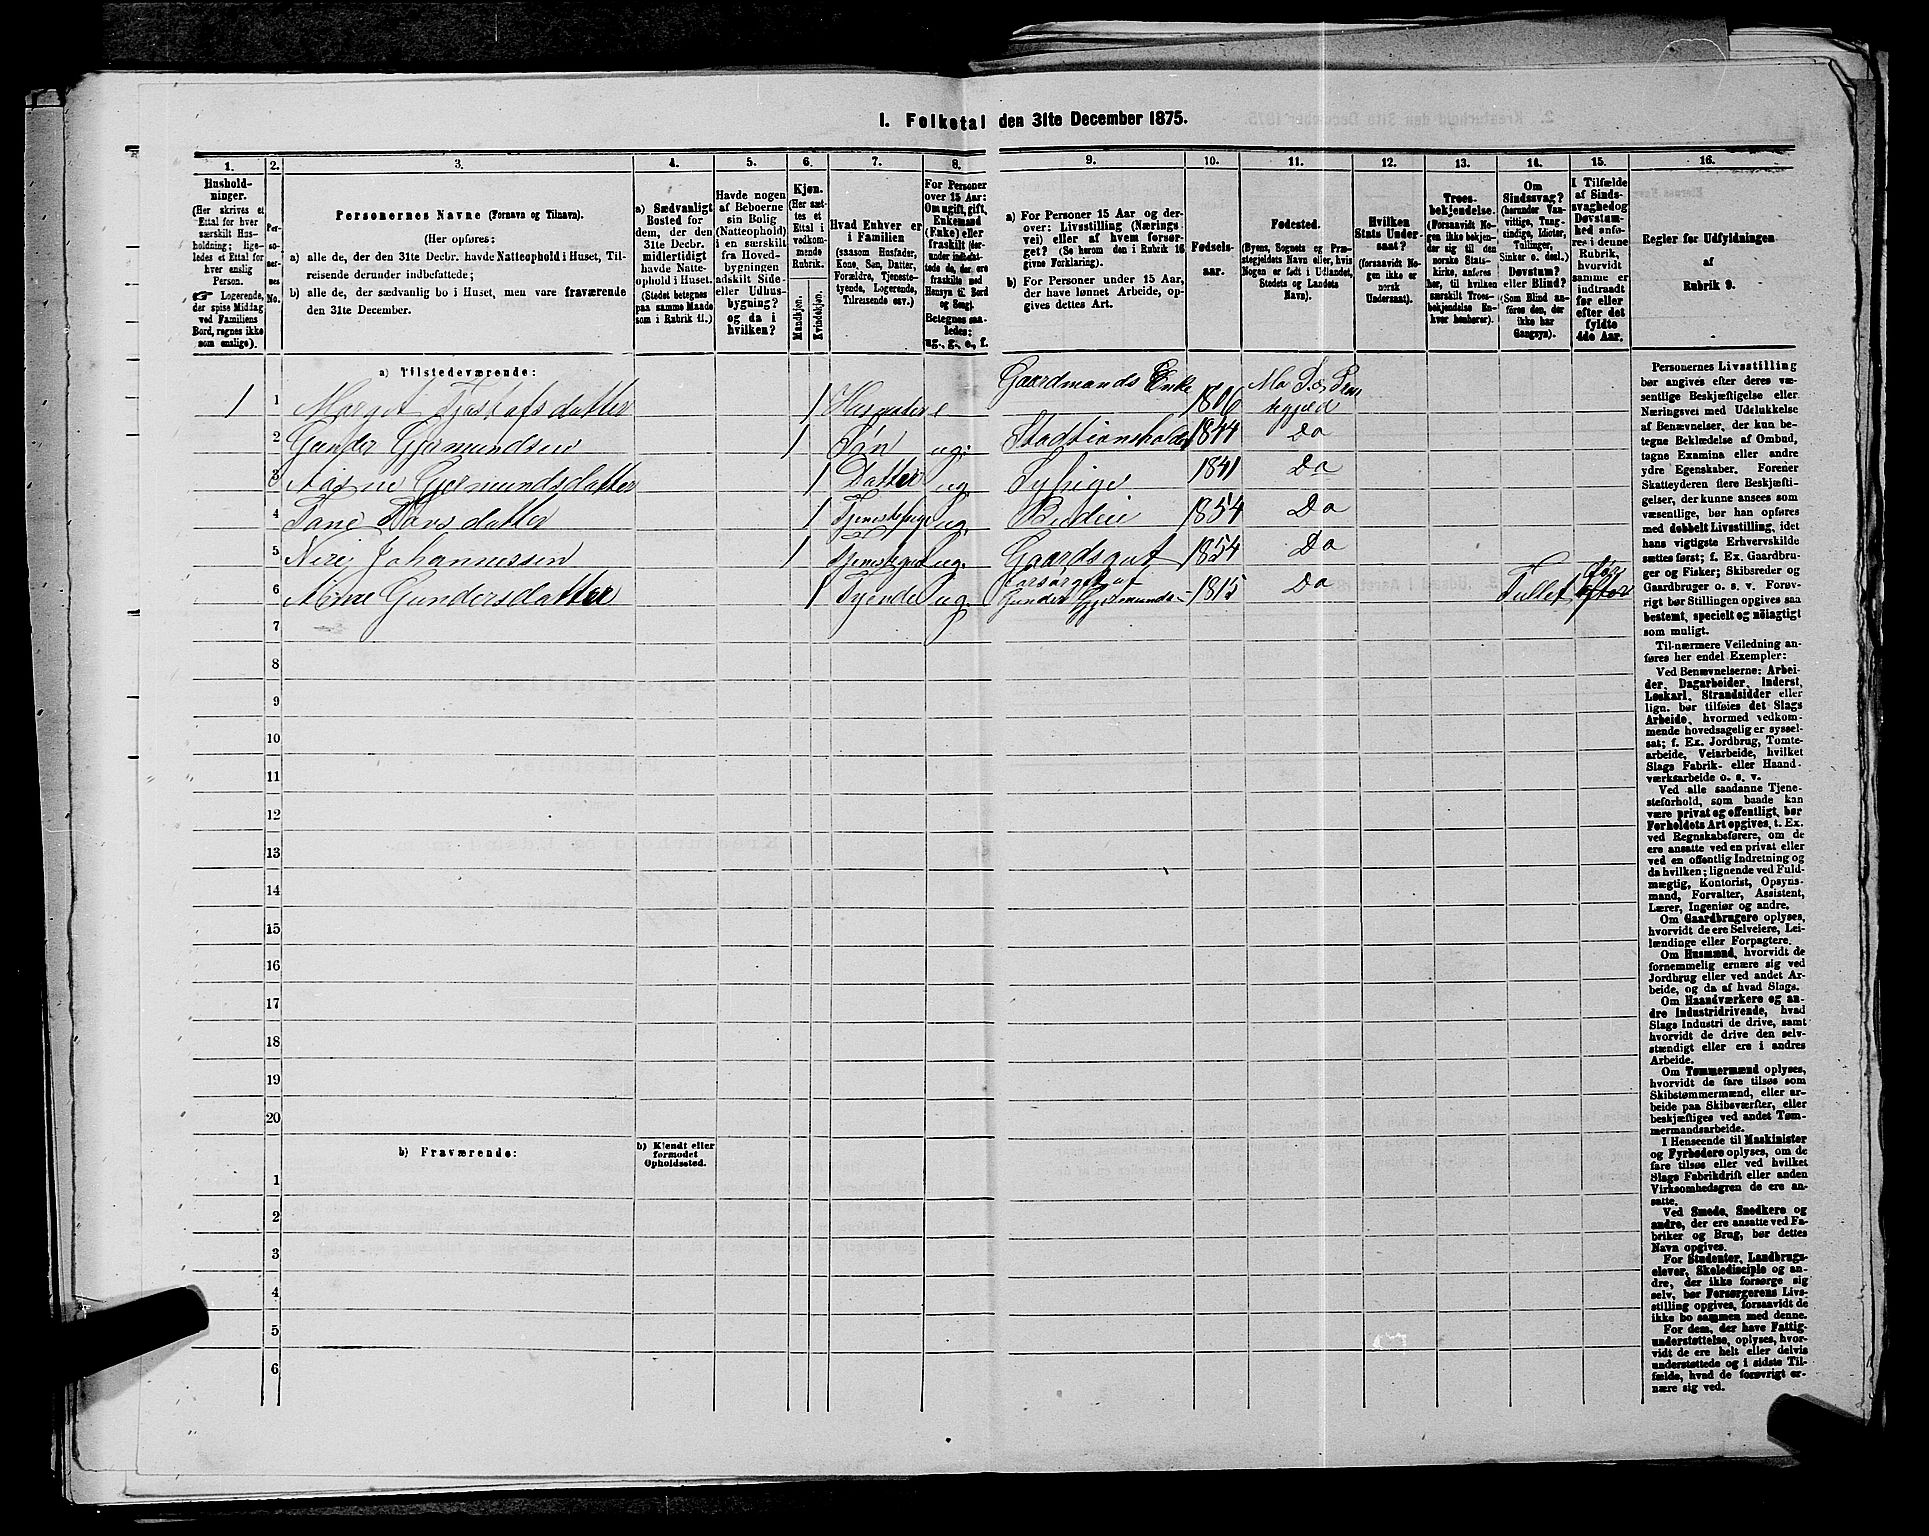 I. Folketal den 31te December 1875.
1. 2. 3. 4. 5. 6. 7. 8. 9. 10. 11. 12. 13. 14. 15. 16.
Hushold-
ninger.
(Her skrives et
Ettal for hver
særskilt Hus-
holdning; lige-
ledes et Ettal for
hver enslig
Person.
☞ Logerende,
der spise Middag
ved Familiens
Bord, regnes ikke
som enslige).
Per-
so-
ner-
nes
No.
Personernes Navne (Fornavn og Tilnavn).
(Her opføres:
a) alle de, der den 31te Decbr. havde Natteophold i Huset, Til-
reisende derunder indbefattede;
b) alle de, der sædvanlig bo i Huset, men vare fraværende
den 31te December.
a) Sædvanligt
Bosted for
dem, der den
31te Decbr.
midlertidigt
havde Natte-
ophold i Huset.
(Stedet betegnes
paa samme Maade
som i Rubrik 11.)
Havde nogen
af Beboerne
sin Bolig
(Natteophold)
i en særskilt
fra Hoved-
bygningen
adskilt Side-
eller Udhus-
bygning?
og da i
hvilken?
Kjøn.
(Her sæt-
tes et
Ettal i
vedkom-
mende
Rubrik.
Mandkjøn.
Kvindekjøn.
Hvad Enhver er
i Familien
(saasom Husfader,
Kone, Søn, Datter,
Forældre, Tjeneste-
tyende, Logerende,
Tilreisende osv.)
For Personer
over 15 Aar:
Om ugift, gift,
Enkemand
(Enke) eller
fraskilt (der-
under indbefat-
tede de, der ere
fraskilte med
Hensyn til Bord
og Seng).
Betegnes saa-
ledes:
ug., g., e., f.
a) For Personer 15 Aar og der-
over: Livsstilling (Nærings-
vei) eller af hvem forsør-
get? (Se herom den i Rubrik 16
givne Forklaring).
b) For Personer under 15 Aar,
der have lønnet Arbeide, op-
gives dettes Art.
Fødsels-
aar.
Fødested.
(Byens, Sognets og Præ-
stegjeldets Navn eller, hvis
Nogen er født i Udlandet,
Stedets og Landets
Navn).
Hvilken
Stats Under-
saat?
(forsaavidt No-
gen ikke er
norsk
Undersaat).
Troes-
bekjendelse.
(Forsaavidt No-
gen ikke bekjen-
der sig til den
norske Stats-
kirke, anføres
her, til hvilken
særskilt Troes-
bekjendelse En-
hver henhører).
Om
Sindssvag?
(herunder Van-
vittige, Tung-
sindige, Idioter,
Tullinger,
Sinker o. desl.)
Døvstum?
eller Blind?
(Som Blind an-
føres den, der
ikke har
Gangsyn).
I Tilfælde
af Sinds-
svaghed og
Døvstum-
hed anfø-
res i denne
Rubrik,
hvorvidt
samme er
indtraadt
før eller
efter det
fyldte
4de Aar.
Regler for Udfyldningen
af
Rubrik 9.
a) Tilstedeværende:
1 1 Marget Tjøstafsdatter 1 e Gaardmands Enke 1806
2 Gunder Gjermundsen 1 Søn ug. 1844 Do
3 Aasne Gjermundsdatter 1 Datter ug. Sypige 1841 Do
4 Tone Larsdatter 1 Tjenestepige ug. Budeie 1854 Do
5 Neri Johannessen 1 ug. Gaardsgut 1854 Do
6 Gundersdatter 1 Tyende ug. Forsørget af Gunder Gjermunds- 1815 Do Tullet før efter
7
8
9
10
11
12
13
14
15
16
17
18
19
20
b) Fraværende:
b) Kjendt eller
formodet
Opholdssted.
1
2
3
4
5
6
Personernes Livsstilling
bør angives efter deres væ-
sentlige Beskjæftigelse eller
Næringsvei med Udelukkelse
af Benævnelser, der kun be-
tegne Beklædelse af Ombud,
tagne Examina eller andre
ydre Egenskaber. Forener
Skatteyderen flere Beskjæfti-
gelser, der kunne ansees som
væsentlige, bør han opføres
med dobbelt Livsstilling, idet
hans vigtigste Erhvervskilde
sættes først; f. Ex. Gaardbru-
ger og Fisker; Skibsreder og
Gaardbruger o. s. v. Forøv-
rigt bør Stillingen opgives saa
bestemt, specielt og nøiagtigt
som muligt.
Til nærmere Veiledning an-
føres her endel Exempler:
Ved Benævnelserne: Arbei-
der, Dagarbeider, Inderst,
Løskarl, Strandsidder eller
lign. bør tilføies det Slags
Arbeide, hvormed vedkom-
mende hovedsagelig er syssel-
sat; f. Ex. Jordbrug, Tomte-
arbeide, Veiarbeide, hvilket
Slags Fabrik- eller Haand-
værksarbeide o. s. v.
Ved alle saadanne Tjene-
steforhold, som baade kan
være privat og offentligt, bør
Forholdets Art opgives, t. Ex.
ved Regnskabsførere, om de
ere ansatte ved en privat eller
ved en offentlig Indretning og
da hvilken; lignende ved Fuld-
mægtig, Kontorist, Opsyns-
mand, Forvalter, Assistent,
Lærer, Ingeniør og andre.
Om Gaardbrugere oplyses,
hvorvidt de ere Selveiere, Lei-
lændinge eller Forpagtere.
Om Husmænd, hvorvidt de
fornemmelig ernære sig ved
Jordbrug eller ved andet Ar-
beide, og da af hvad Slags.
Om Haandværkere og an-
dre Industridrivende, hvad
Slags Industri de drive, samt
hvorvidt de drive den selv-
stændigt eller ere i andres
Arbeide.
Om Tømmermænd oplyses,
hvorvidt de fare tilsøs som
Skibstømmermænd, eller ar-
beide paa Skibsværfter, eller
beskjæftiges ved andet Tøm-
mermandsarbeide.
I Henseende til Maskinister
og Fyrbødere oplyses, om de
fare tilsøs eller ved hvilket
Slags Fabrikdrift eller anden
Virksomhedsgren de ere an-
satte.
Ved Smede, Snedkere og
andre, der ere ansatte ved Fa-
briker og Brug, bør dettes
Navn opgives.
For Studenter, Landbrugs-
elever, Skoledisciple og an-
dre, der ikke forsørge sig
selv, bør Forsørgerens Livs-
stilling opgives, forsaavidt de
ikke bo sammen med denne.
For dem, der have Fattig-
understøttelse, oplyses, hvor-
vidt de ere helt eller delvis
understøttede og i sidste Til-
fælde, hvad de forøvrigt er-
nære sig ved.